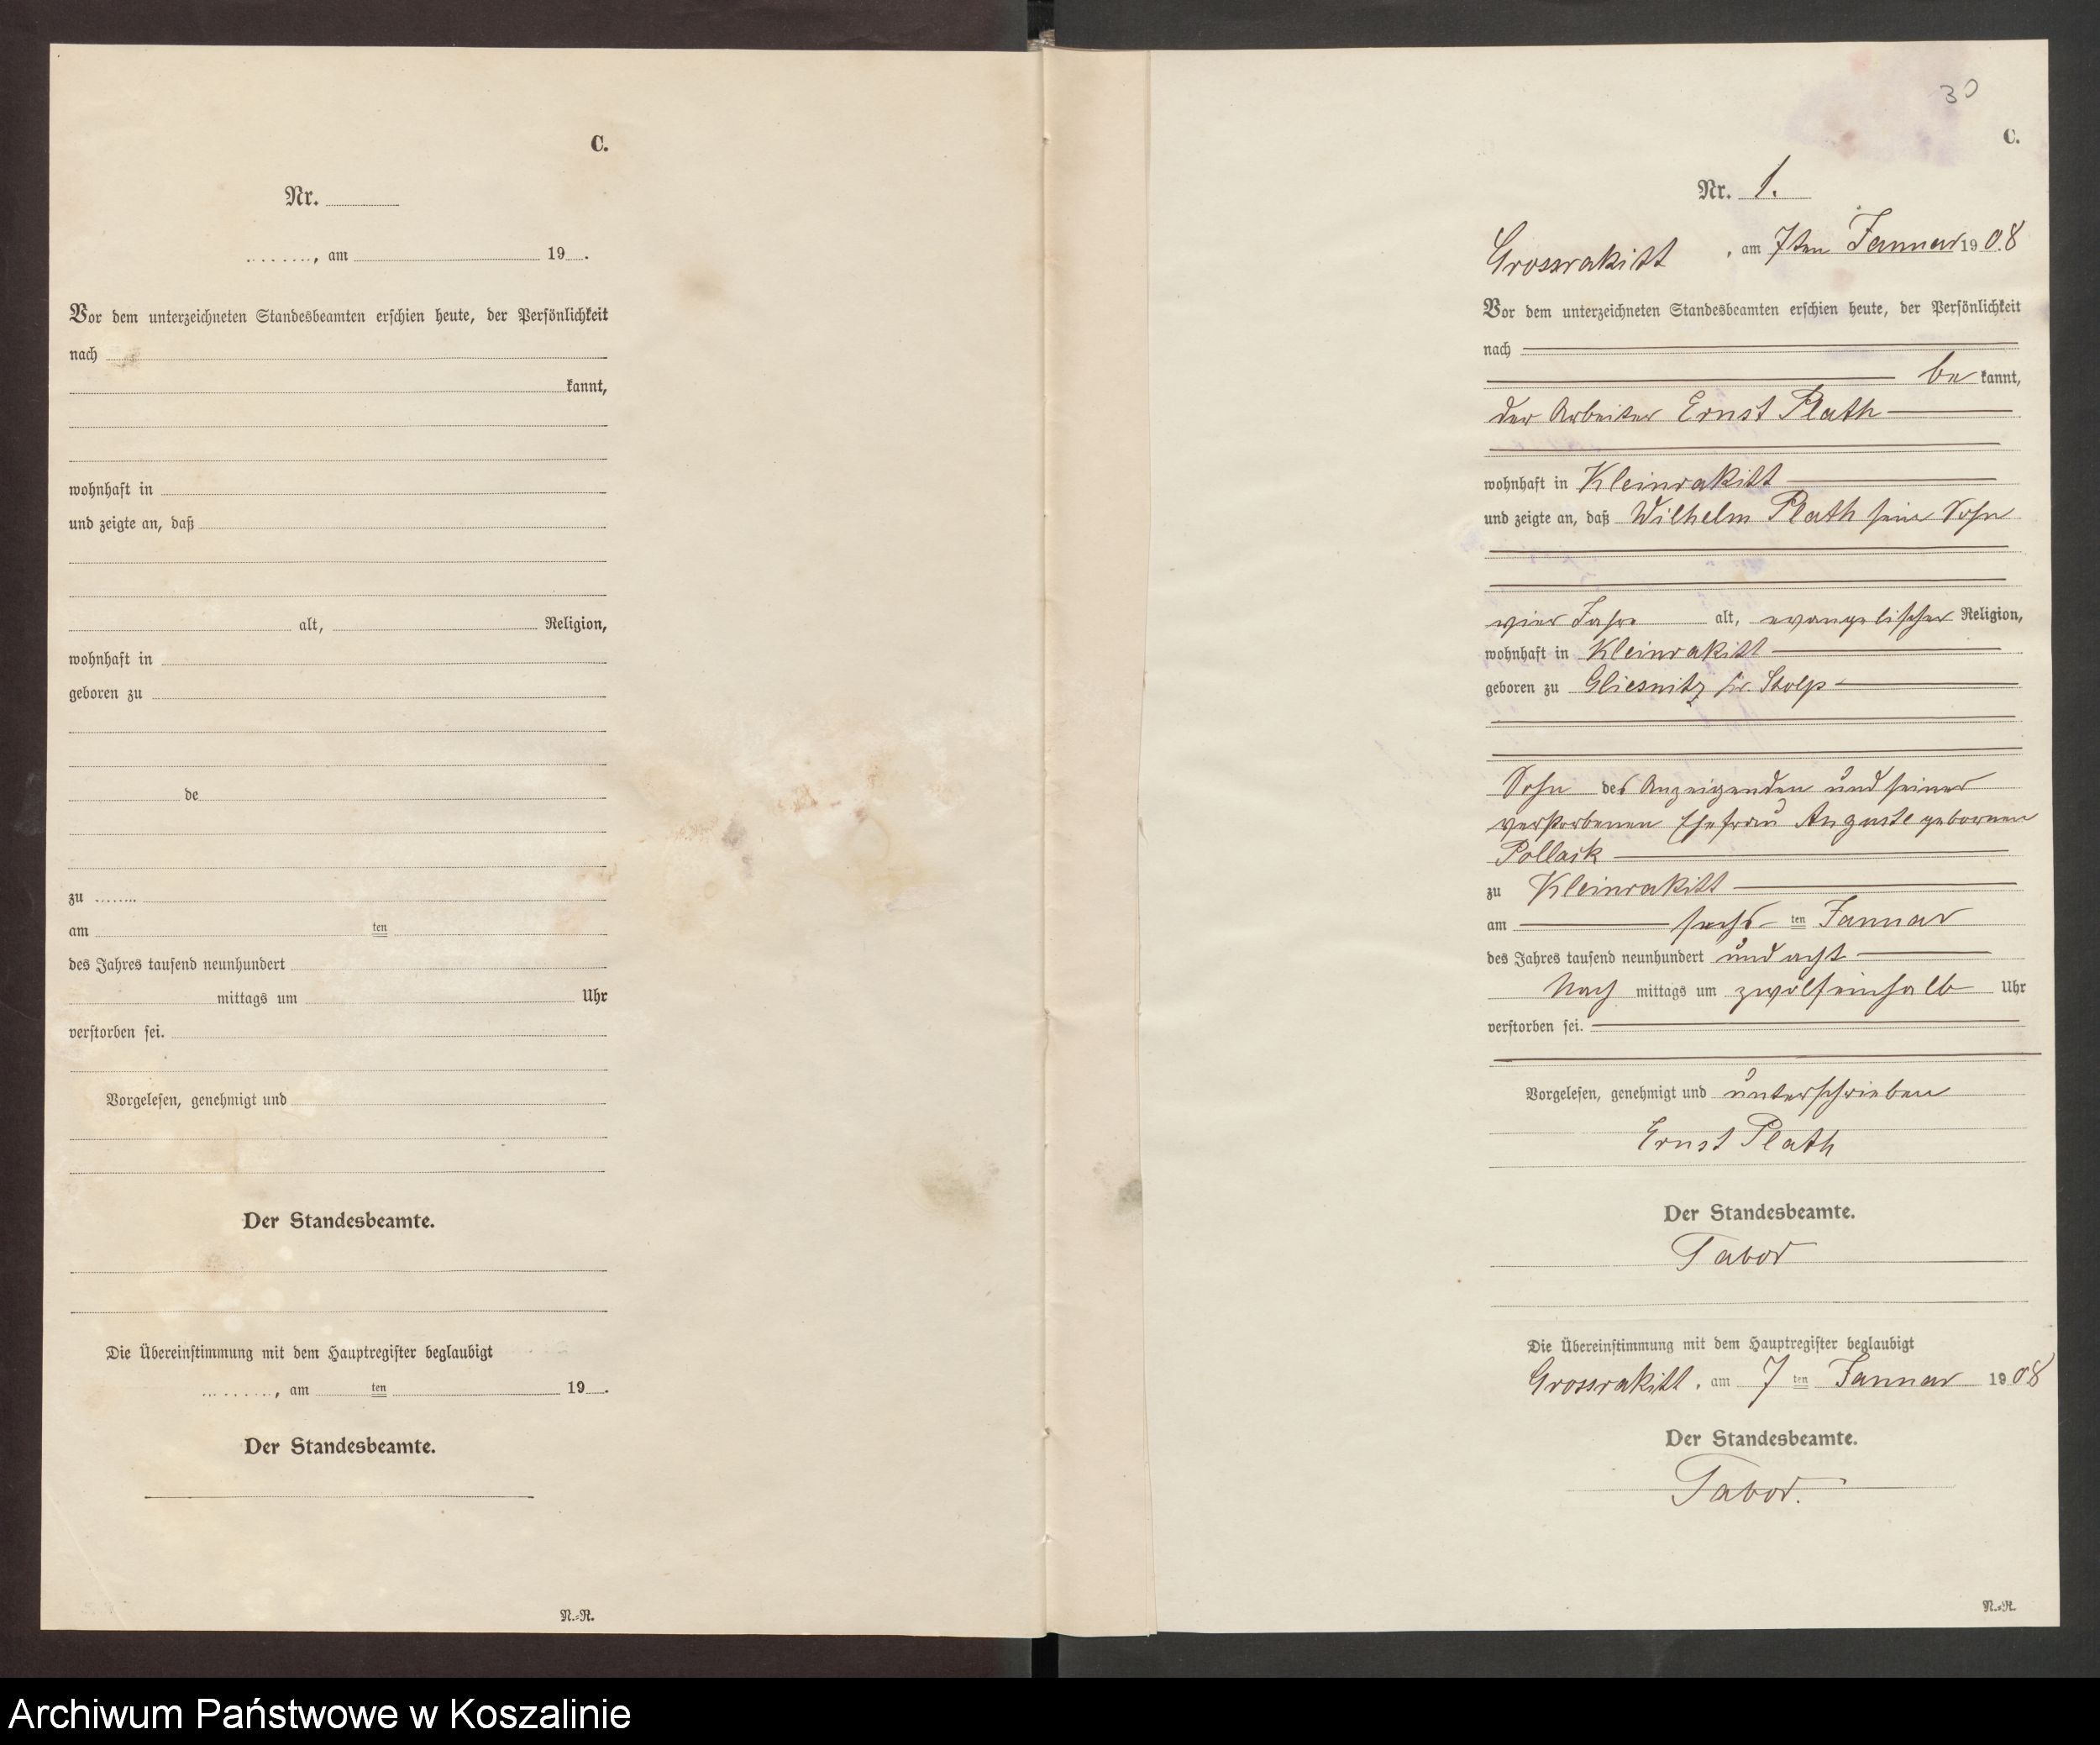 C.
Nr.
, am 19 .
Vor dem unterzeichneten Standesbeamten erschien heute, der Persönlichkeit
nach
kannt,
wohnhaft in
und zeigte an, daß
alt, Religion,
wohnhaft in
geboren zu
de
zu
am ten
des Jahres tausend neunhundert
mittags um Uhr
verstorben sei.
Vorgelesen, genehmigt und
Der Standesbeamte.
Die Übereinstimmung mit dem Hauptregister beglaubigt
, am ten 19 .
Der Standesbeamte.
N.=R.
30
C.
Nr. 1.
Grossrakitt , am 7ten Januar 1908
Vor dem unterzeichneten Standesbeamten erschien heute, der Persönlichkeit
nach
be kannt,
der Arbeiter Ernst Plath
wohnhaft in Kleinrakitt
und zeigte an, daß Wilhelm Plath sein Sohn
vier Jahre alt, evangelischer Religion,
wohnhaft in Kleinrakitt
geboren zu Gliesnitz Kr. Stolp
Sohn des Anzeigenden und seiner
verstorbenen Ehefrau Auguste gebornen
Pollack
zu Kleinrakitt
am sechs ten Januar
des Jahres tausend neunhundert und acht
Nach mittags um zwölfeinhalb Uhr
verstorben sei.
Vorgelesen, genehmigt und unterschrieben
Ernst Plath
Der Standesbeamte.
Tabor
Die Übereinstimmung mit dem Hauptregister beglaubigt
Grossrakitt, am 7 ten Januar 1908
Der Standesbeamte.
Tabor.
N.=R.
Archiwum Państwowe w Koszalinie